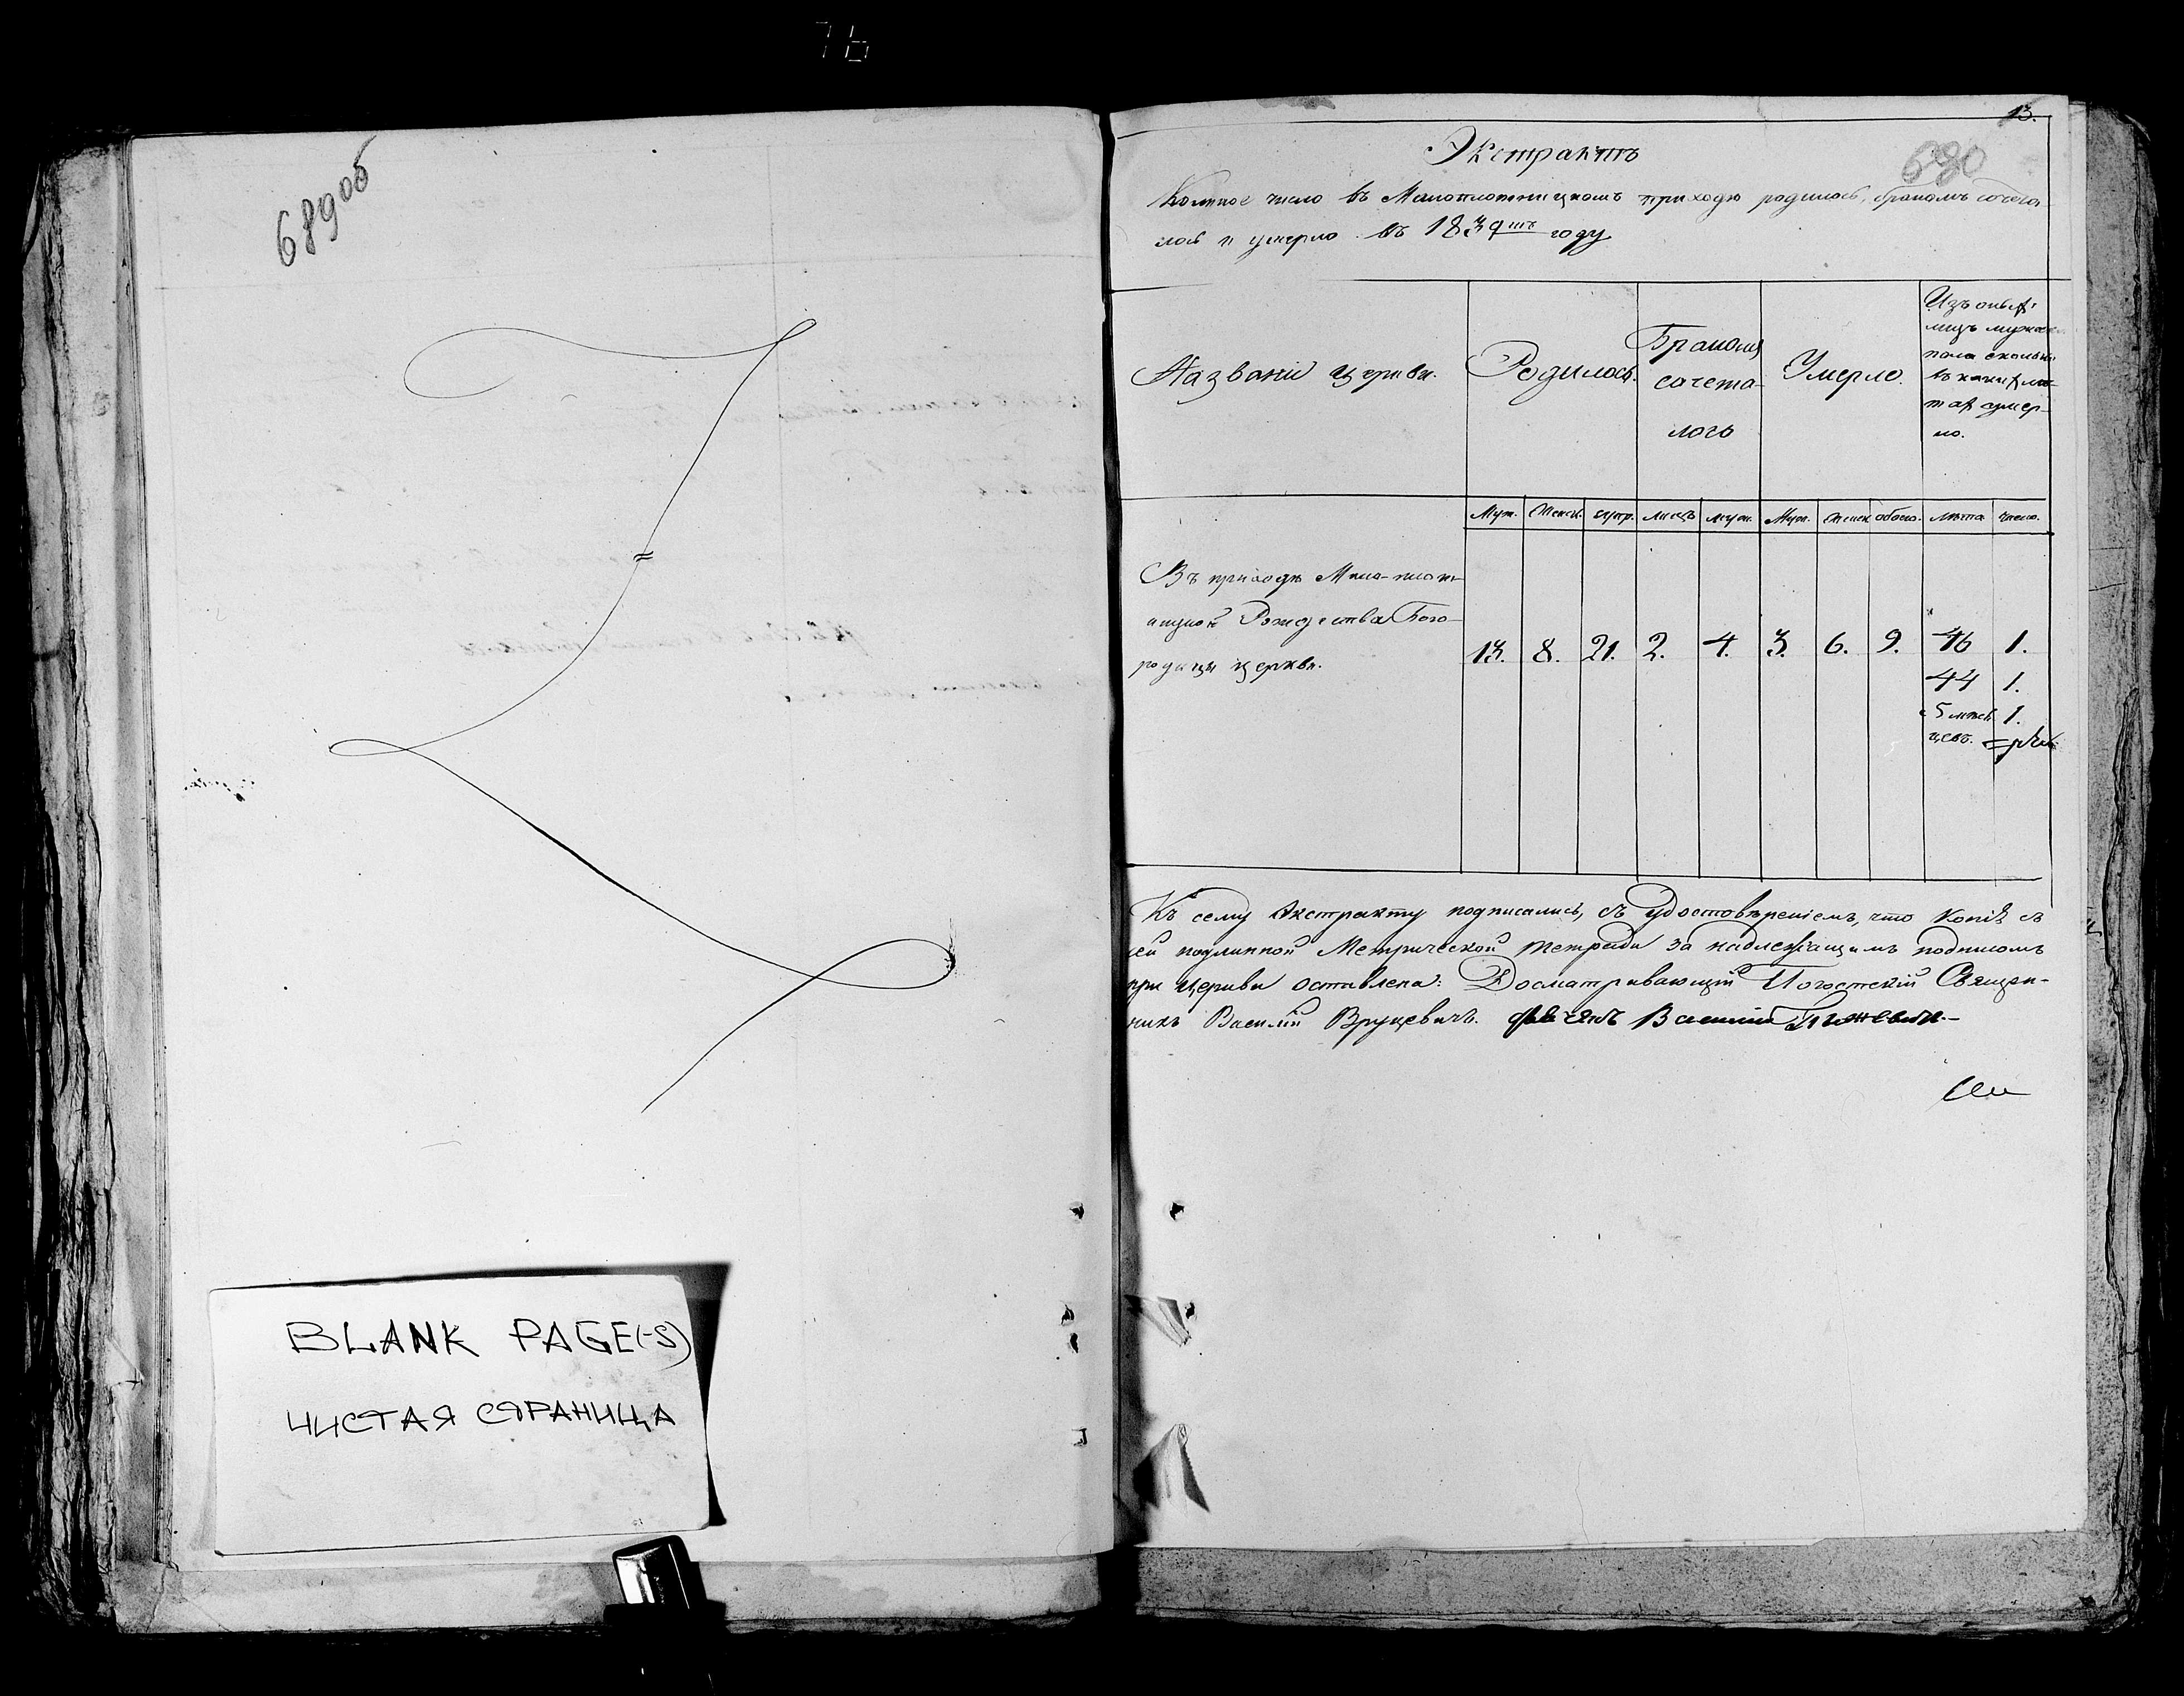 76
689об
BLANK PAGE(-S)
ЧИСТАЯ СТРАНИЦА
13.
690
Экстрактъ
Коликое число въ Малоплотницкомъ приходѣ родилось, бракомъ сочета
лось и умерло въ 1839мъ году
Названіе церкви.
Родилось.
Бракомъ
сочета-
лось
Умерло.
Изъ оныхъ
лицъ мужеск
пола сколько
въ какихъ лѣ-
тахъ умер-
ло.
Муж. Женск. супр. лицъ муж. Муж. женск обоего. лѣта число.
Въ приходѣ Мало-плот-
ницкой Рождества Бого-
родицы церкви.
13. 8. 21. 2. 4. 3. 6. 9. 46 1.
44 1.
5 мѣся 1.
цевъ.
Къ сему Экстракту подписались, съ удостовѣреніемъ, что копія съ
сей подлинной Метрической тетради за надлежащимъ подписомъ
при церкви оставлена: Досматривающій Погостскій Священ-
никъ Василій Вруцевичъ. Василій